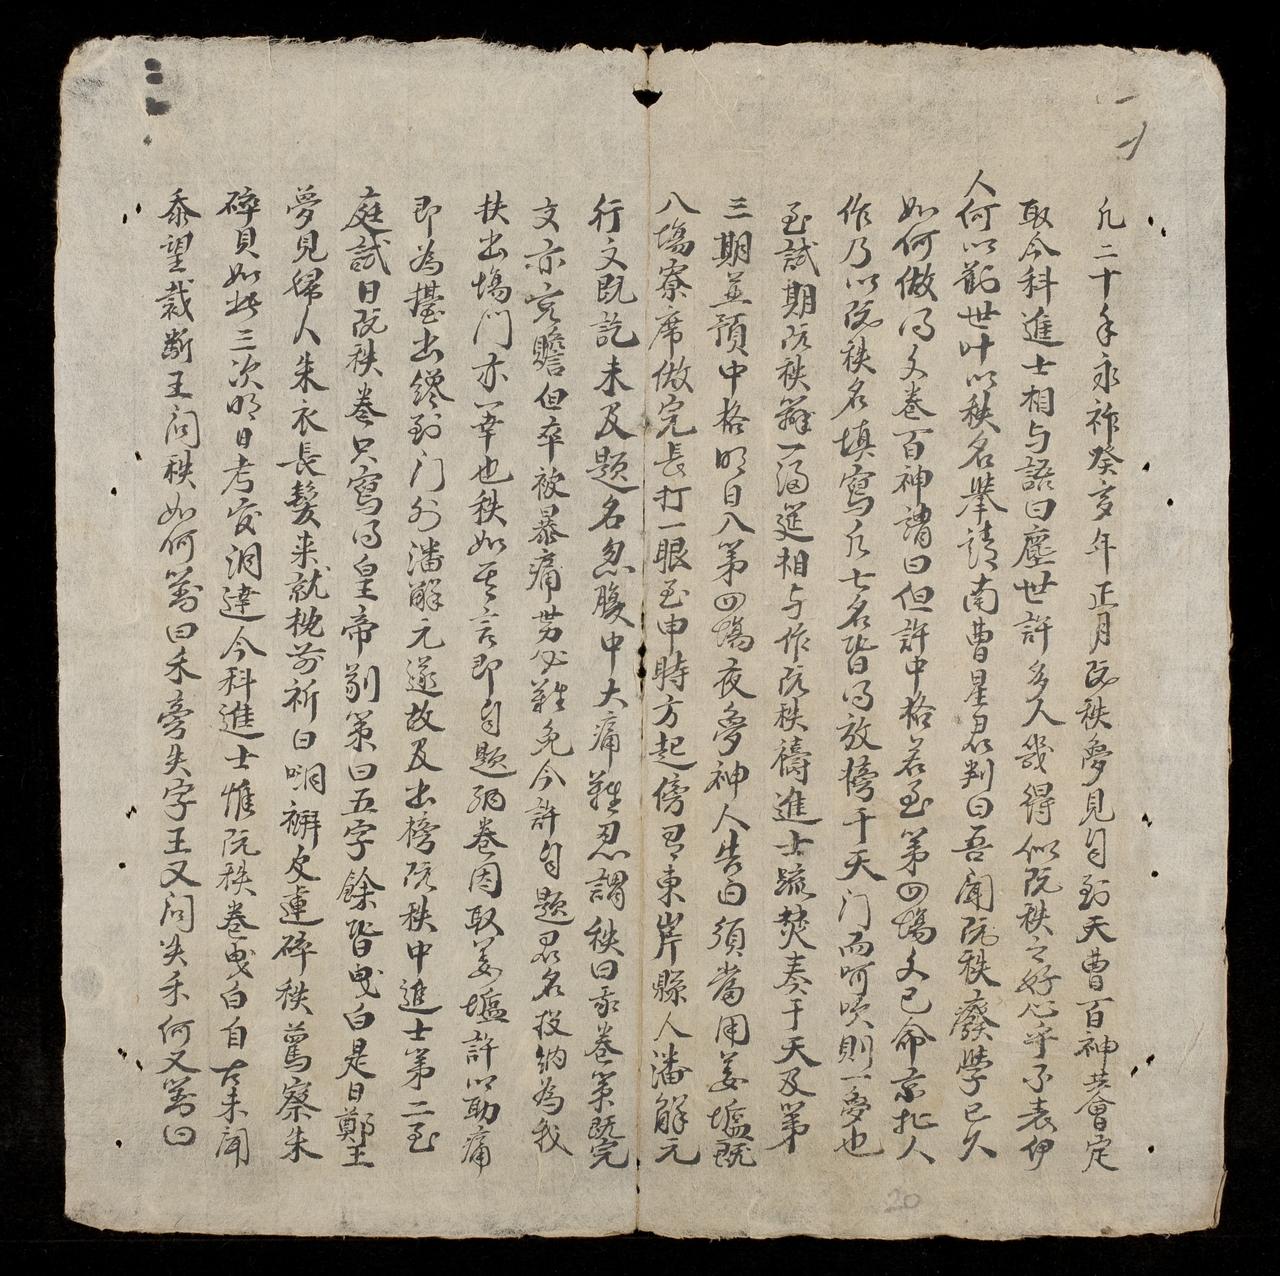 凡二十年永祚癸亥年正月阮秩夢見自到天曹百神共會定
取今科進士相与語曰塵世許多人幾得似阮秩之好心乎不表伊
人何以勸世叶以秩名舉請南曹星君判曰吾聞阮秩廢學已久
如何做得文卷百神謂曰但許中格若至第四塲文已命京北人
作乃以阮秩名填寫凡七名皆得放榜于天门而呵吹則一夢也
至試期阮秩辦一酒筵相与作阮秩禱進士䟽焚奏于天及第
三期並預中格明日入第四塲夜夢神人告曰須當用姜塩既
入塲寮席做完長打一眼至申時方起傍有東岸縣人潘解元
行文既訖未及題名忽腹中大痛難忍謂秩曰我卷策既完
文亦宏贍但卒被暴痛勢必難免今許自題君名投納為我
扶出塲門亦一幸也秩如其言即自題納卷因取姜塩許以助痛
即為擡出纔到门外潘解元遂故及出榜阮秩中進士第二至
庭試日阮秩卷只寫得皇帝制策曰五字餘皆曳白是日鄭王
夢見婦人朱衣長髮来就枕前祈曰唭襒皮連碎秩蔦察朱
碎貝如此三次明日考官洞達今科進士惟阮秩卷曳白自古未聞
忝望裁斷王问秩如何答曰禾旁失字王又问失禾何又答曰